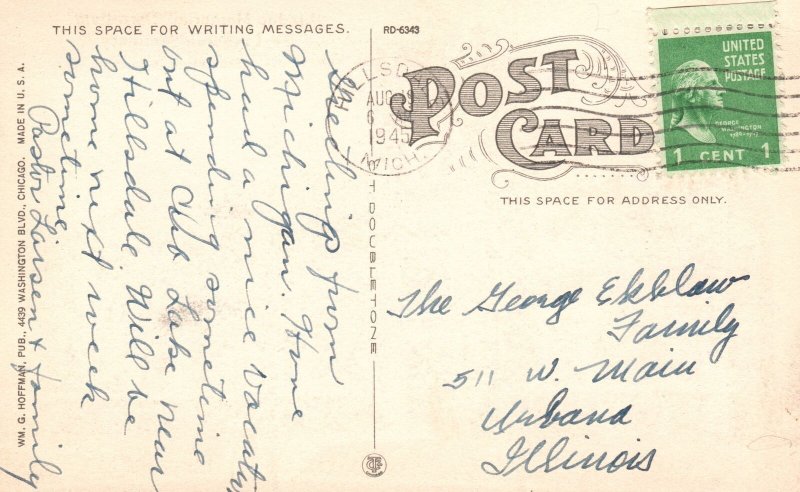 THIS SPACE FOR WRITING MESSAGES.
RD-6343
POST
CARD
THIS SPACE FOR ADDRESS ONLY.
HILLSD
AUG
6
1945
MICH.
UNITED
STATES
POSTAGE
GEORGE
WASHINGTON
1789-1797
1 CENT 1
Greetings from
Michigan. Have
had a nice vacation
spending sometime
out at Lake near
Hillsdale. Will be
home next week
sometime.
Pastor Larsen & family
The George Ekblaw
Family
511 W. Main
Urbana
Illinois
DOUBLETONE
WM. G. HOFFMAN, PUB., 4439 WASHINGTON BLVD., CHICAGO. MADE IN U. S. A.